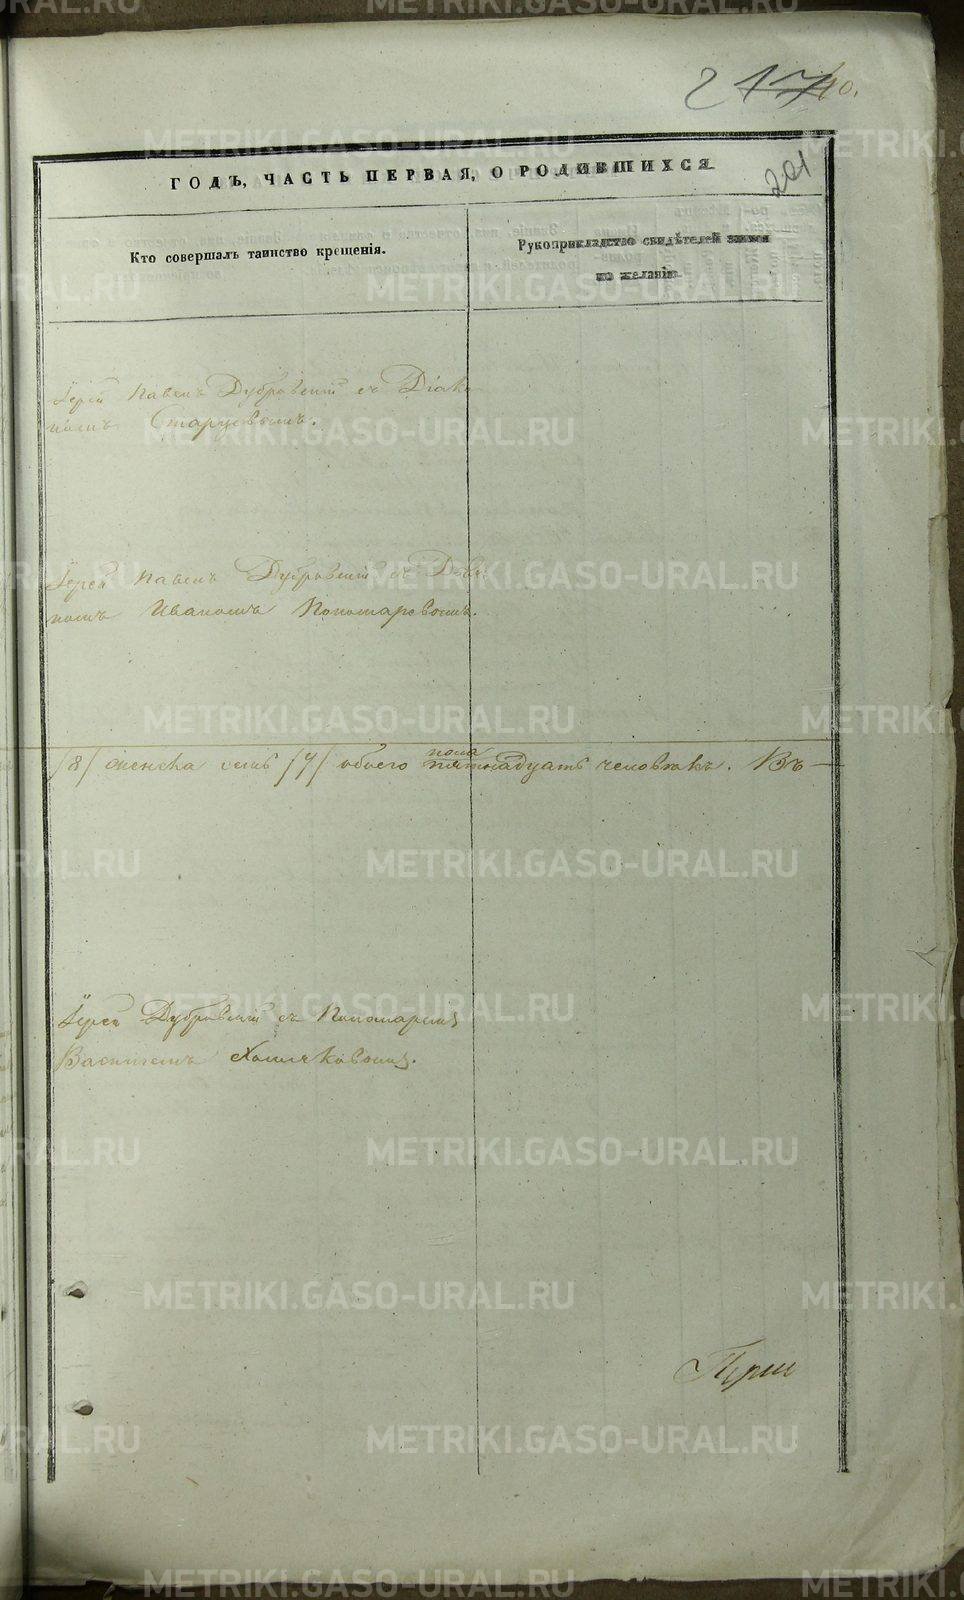 217
10.
201
ГОДЪ, ЧАСТЬ ПЕРВАЯ, О РОДИВШИХСЯ.
Кто совершалъ таинство крещенія.
Рукоприкладство свидѣтелей записи
по желанію.
Іерей Павелъ Дубровскій съ Діако
номъ Старцевымъ.
Іерей Павелъ Дубровскій съ Діако
номъ Иваномъ Пономаревымъ.
/8/ женска семь /7/ обоего пола пятьнадцать человѣкъ. Въ
Іерей Дубровскій съ Пономаремъ
Василіемъ Хлопчковымъ.
При
METRIKI.GASO-URAL.RU